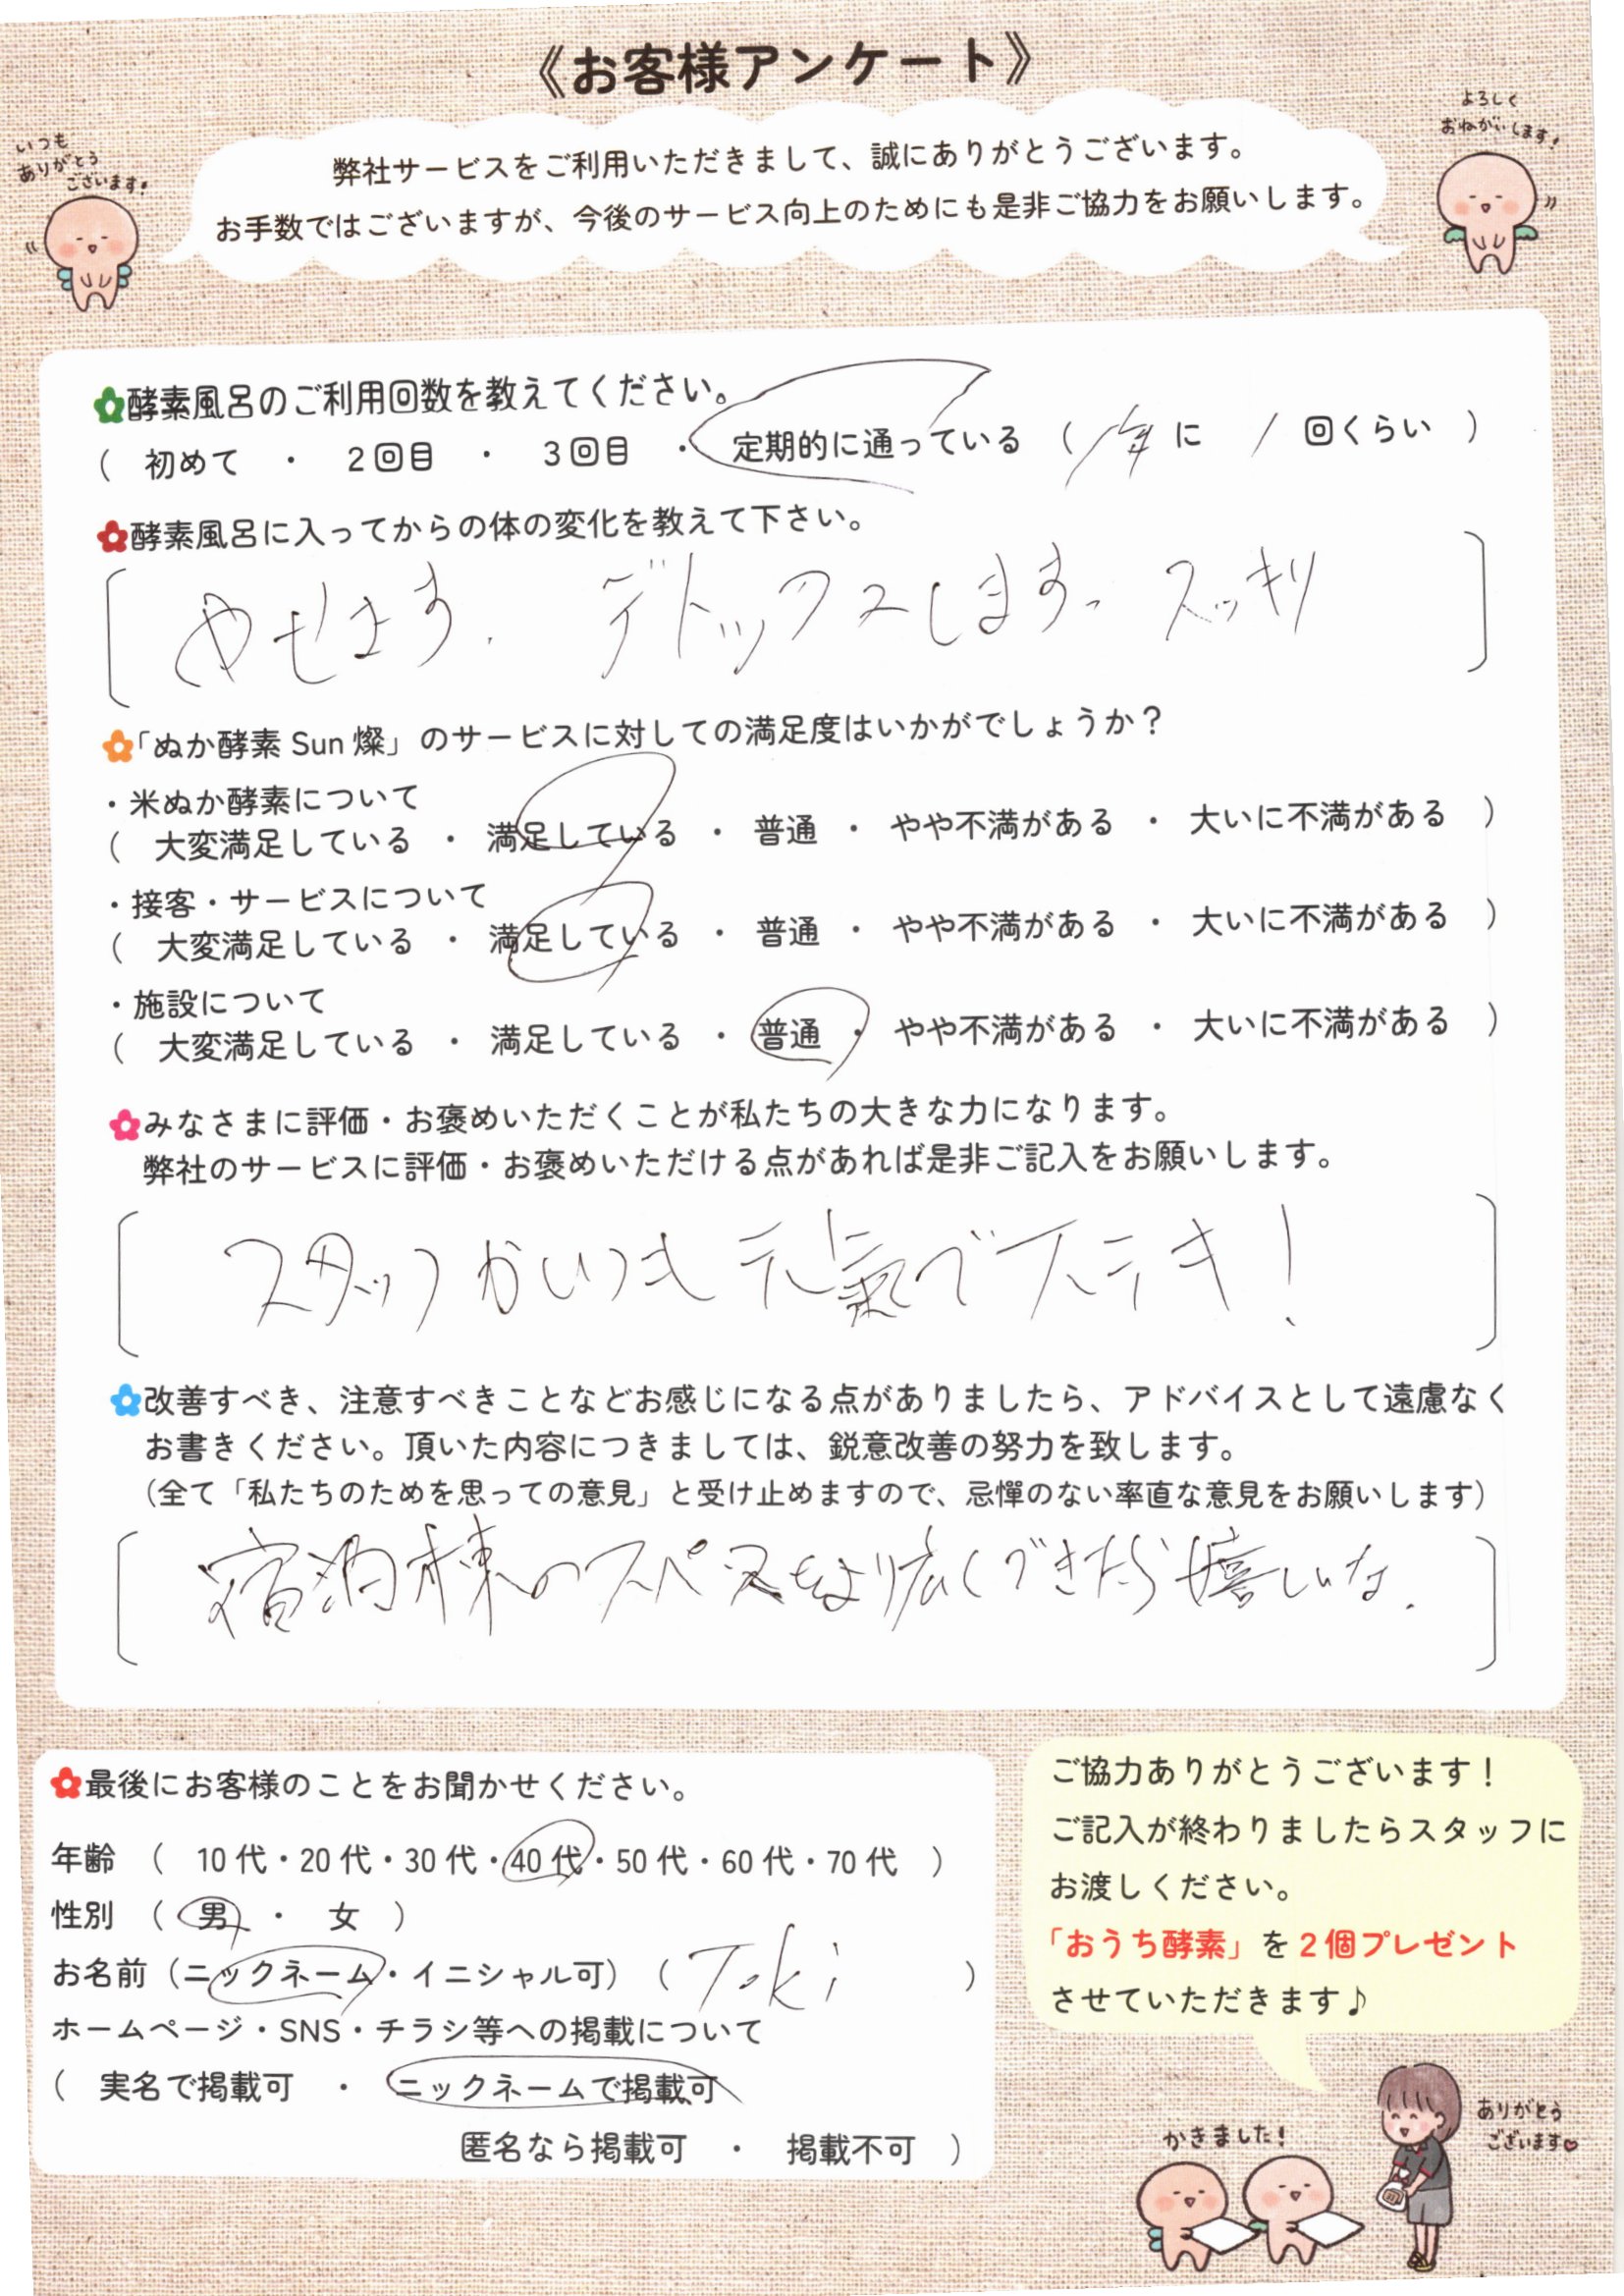 《お客様アンケート》
いつも
ありがとう
ございます!
よろしく
おねがいします!
弊社サービスをご利用いただきまして、誠にありがとうございます。
お手数ではございますが、今後のサービス向上のためにも是非ご協力をお願いします。
酵素風呂のご利用回数を教えてください。
( 初めて ・ 2回目 ・ 3回目 ・ 定期的に通っている ( 1年 に 1 回くらい )
酵素風呂に入ってからの体の変化を教えて下さい。
やせます. デトックスします。スッキリ
「ぬか酵素 Sun 燦」のサービスに対しての満足度はいかがでしょうか?
・米ぬか酵素について
( 大変満足している ・ 満足している ・ 普通 ・ やや不満がある ・ 大いに不満がある )
・接客・サービスについて
( 大変満足している ・ 満足している ・ 普通 ・ やや不満がある ・ 大いに不満がある )
・施設について
( 大変満足している ・ 満足している ・ 普通 ・ やや不満がある ・ 大いに不満がある )
みなさまに評価・お褒めいただくことが私たちの大きな力になります。
弊社のサービスに評価・お褒めいただける点があれば是非ご記入をお願いします。
スタッフがいつも元氣でステキ!
改善すべき、注意すべきことなどお感じになる点がありましたら、アドバイスとして遠慮なく
お書きください。頂いた内容につきましては、鋭意改善の努力を致します。
(全て「私たちのためを思っての意見」と受け止めますので、忌憚のない率直な意見をお願いします)
宿泊棟のスペースをより広くできたら嬉しいな.
最後にお客様のことをお聞かせください。
年齢 ( 10代・20代・30代・40代・50代・60代・70代 )
性別 ( 男 ・ 女 )
お名前(ニックネーム・イニシャル可) ( Toki )
ホームページ・SNS・チラシ等への掲載について
( 実名で掲載可 ・ ニックネームで掲載可
匿名なら掲載可 ・ 掲載不可 )
ご協力ありがとうございます!
ご記入が終わりましたらスタッフに
お渡しください。
「おうち酵素」を2個プレゼント
させていただきます♪
かきました!
ありがとう
ございます♥